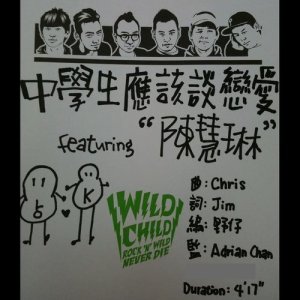 中學生應該談戀愛
featuring "陳慧琳"
k
WILD
CHILD
ROCK 'N' WILD
NEVER DIE
曲: Chris
詞: Jim
編: 野仔
監: Adrian Chan
Duration: 4'17"